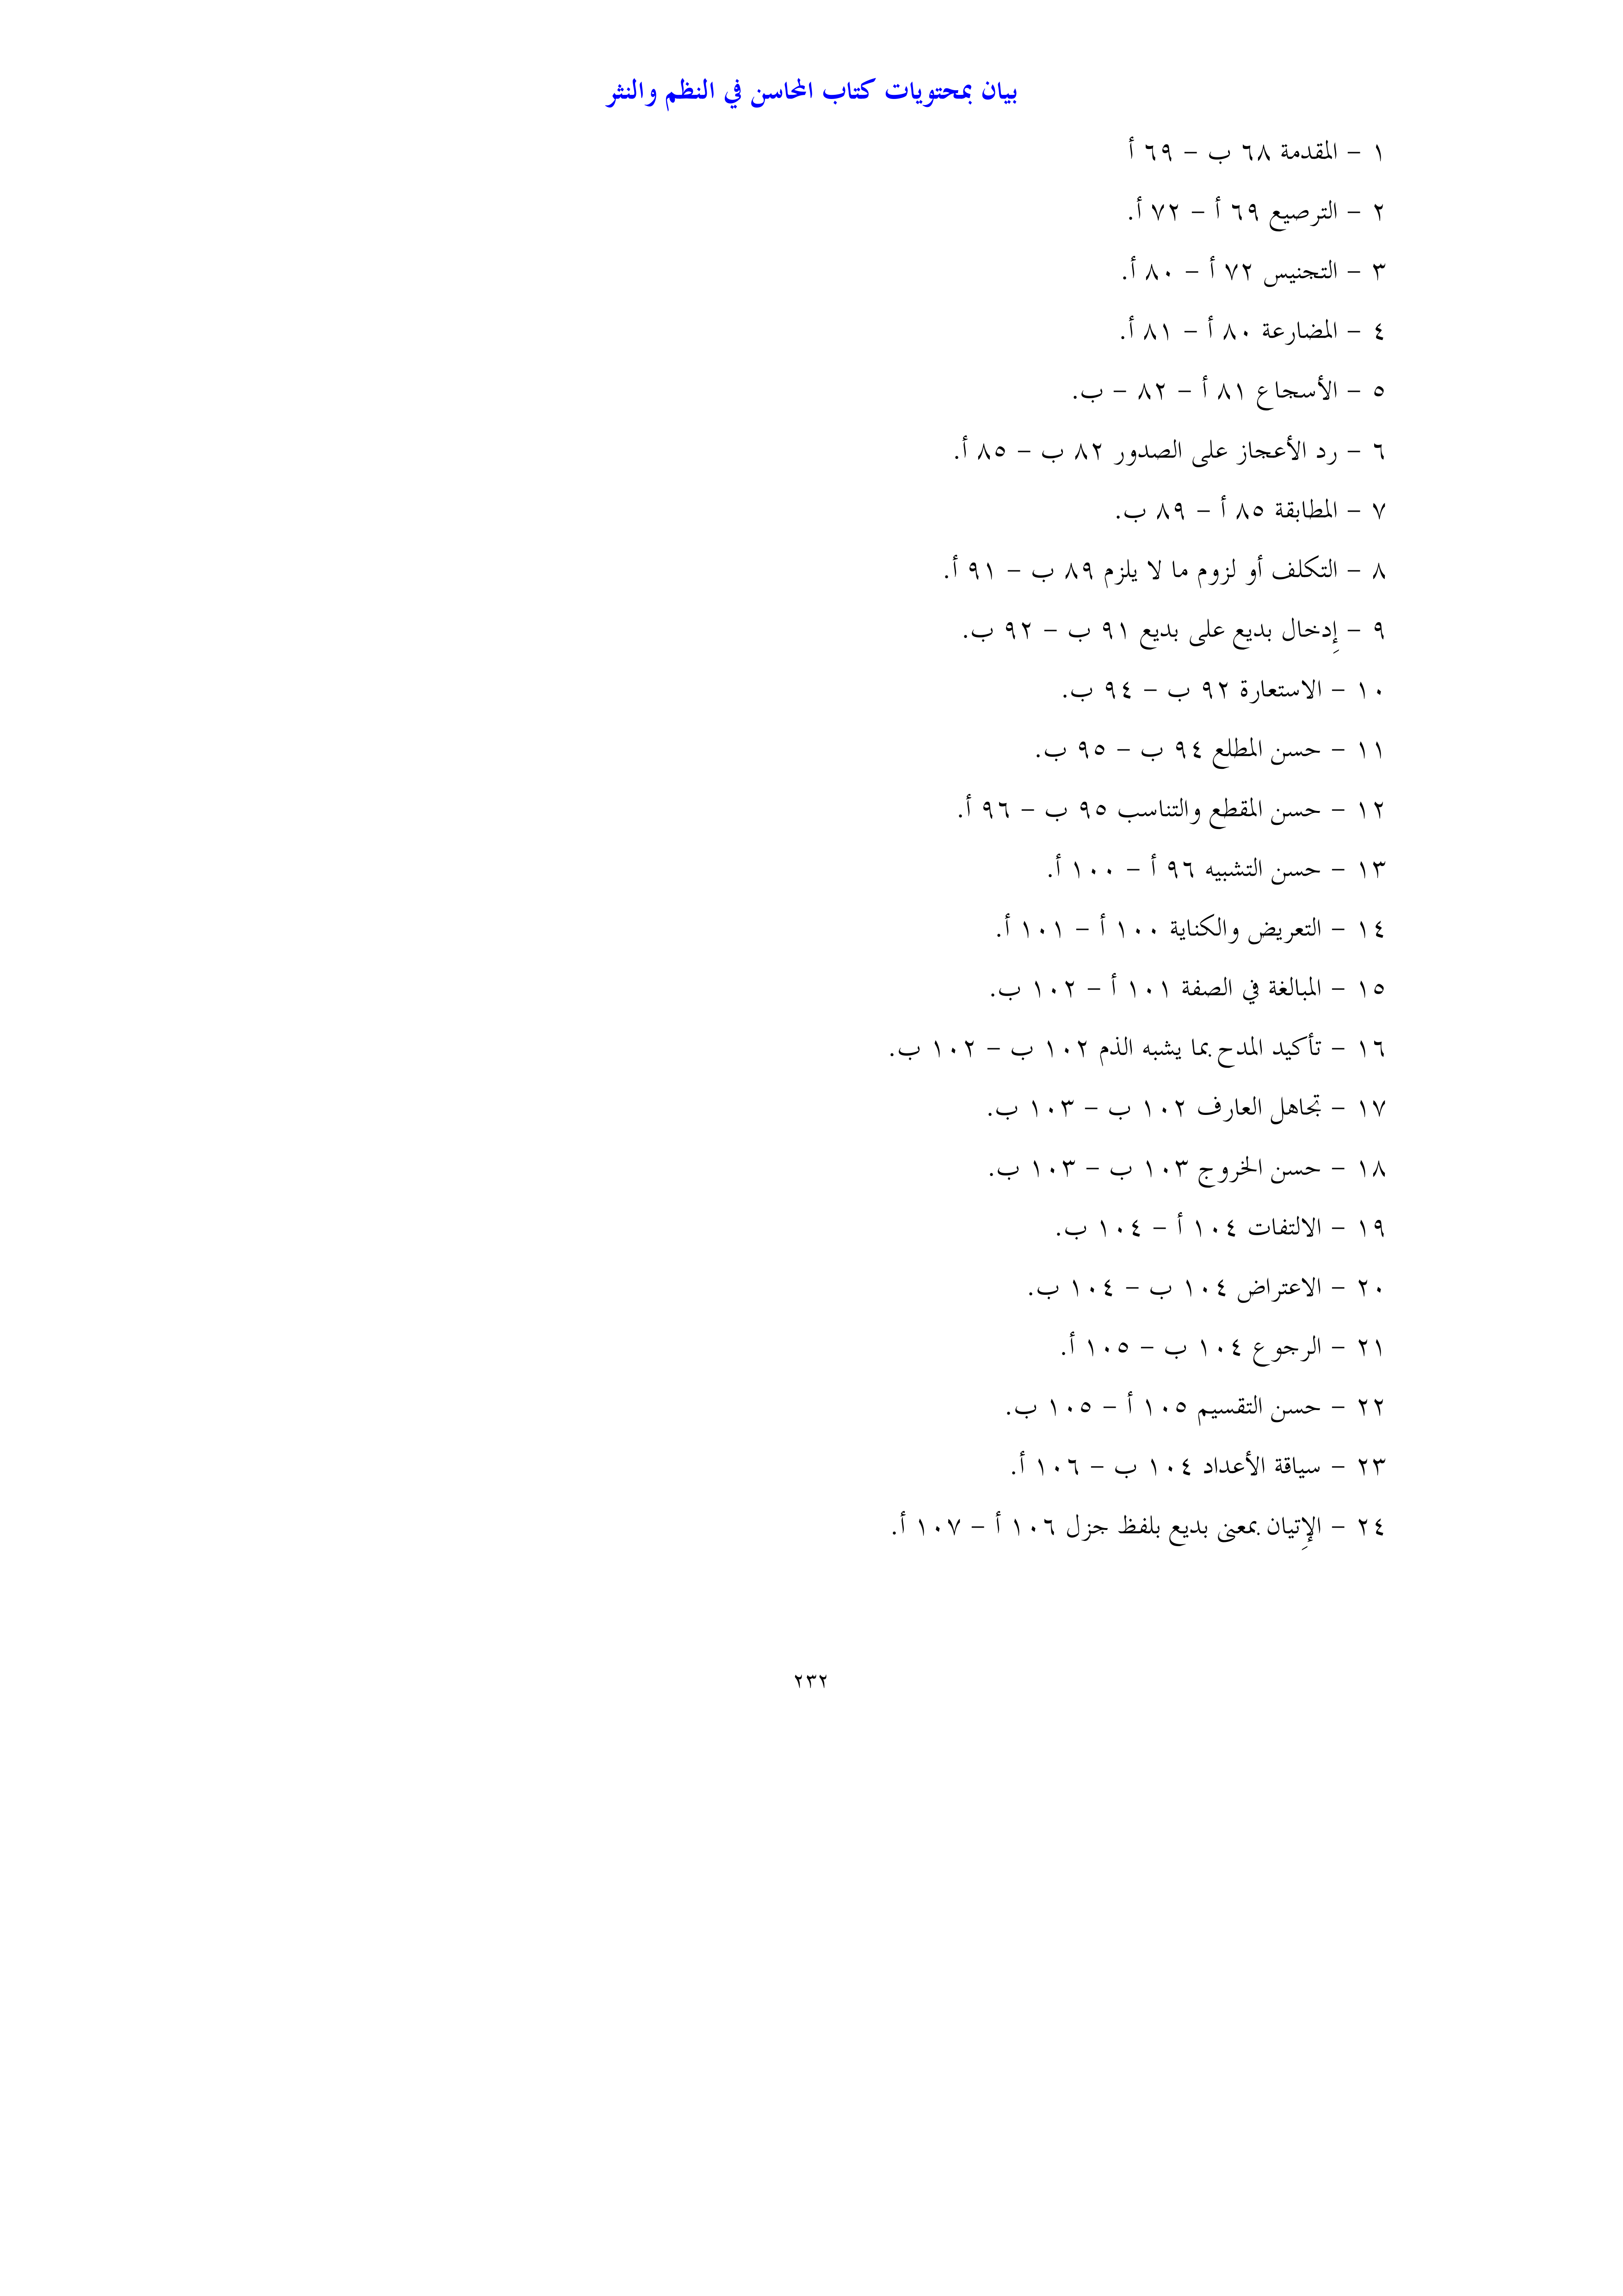 بيان بمحتويات كتاب المحاسن في النظم والنثر
١ - المقدمة ٦٨ ب - ٦٩ أ
٢ - الترصيع ٦٩ أ - ٧٢ أ.
٣ - التجنيس ٧٢ أ - ٨٠ أ.
٤ - المضارعة ٨٠ أ - ٨١ أ.
٥ - الأسجاع ٨١ أ - ٨٢ - ب.
٦ - رد الأعجاز على الصدور ٨٢ ب - ٨٥ أ.
٧ - المطابقة ٨٥ أ - ٨٩ ب.
٨ - التكلف أو لزوم ما لا يلزم ٨٩ ب - ٩١ أ.
٩ - إدخال بديع على بديع ٩١ ب - ٩٢ ب.
١٠ - الاستعارة ٩٢ ب - ٩٤ ب.
١١ - حسن المطلع ٩٤ ب - ٩٥ ب.
١٢ - حسن المقطع والتناسب ٩٥ ب - ٩٦ أ.
١٣ - حسن التشبيه ٩٦ أ - ١٠٠ أ.
١٤ - التعريض والكناية ١٠٠ أ - ١٠١ أ.
١٥ - المبالغة في الصفة ١٠١ أ - ١٠٢ ب.
١٦ - تأكيد المدح بما يشبه الذم ١٠٢ ب - ١٠٢ ب.
١٧ - تجاهل العارف ١٠٢ ب - ١٠٣ ب.
١٨ - حسن الخروج ١٠٣ ب - ١٠٣ ب.
١٩ - الالتفات ١٠٤ أ - ١٠٤ ب.
٢٠ - الاعتراض ١٠٤ ب - ١٠٤ ب.
٢١ - الرجوع ١٠٤ ب - ١٠٥ أ.
٢٢ - حسن التقسيم ١٠٥ أ - ١٠٥ ب.
٢٣ - سياقة الأعداد ١٠٤ ب - ١٠٦ أ.
٢٤ - الإتيان بمعنى بديع بلفظ جزل ١٠٦ أ - ١٠٧ أ.
٢٣٢